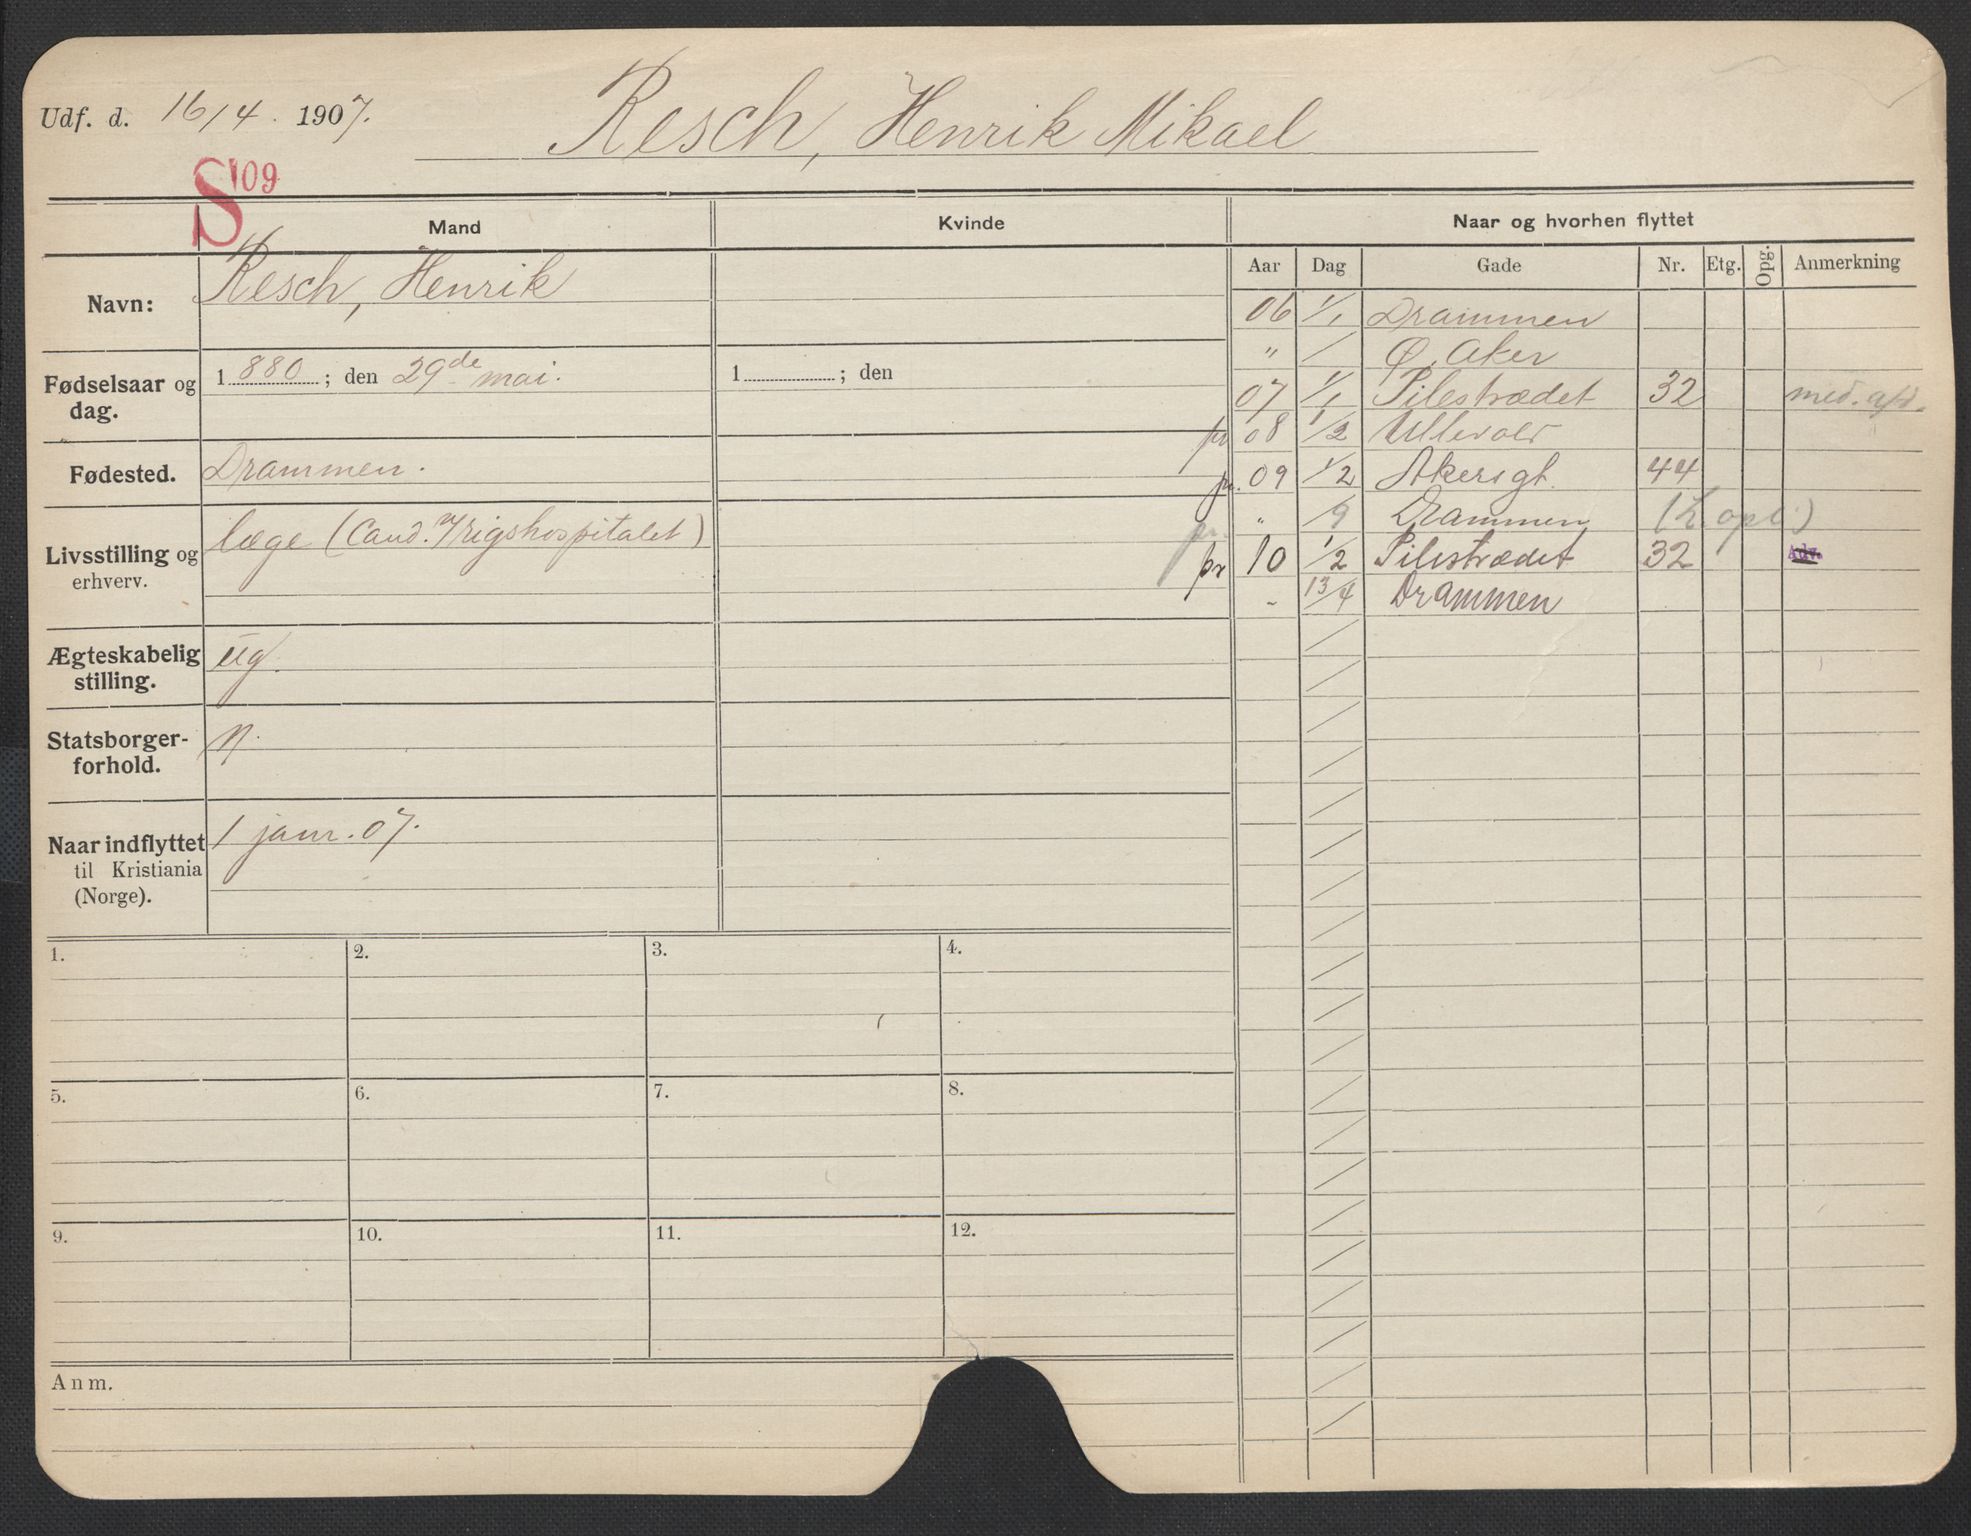 Udf. d. 16/4. 1907.
Resch, Henrik Mikael
S'09
Mand
Kvinde
Naar og hvorhen flyttet
Aar Dag Gade Nr. Etg. Opg. Anmerkning
Navn: Resch, Henrik
Fødselsaar og dag. 1880; den 29de mai.
1 ; den
Fødested. Drammen.
Livsstilling og erhverv. læge (Cand. Rigshospitalet)
Ægteskabelig stilling. ug.
Statsborgerforhold. N.
Naar indflyttet til Kristiania (Norge). 1 janr. 07.
06 1/1 Drammen
" / Ø. Aker
07 1/1 Pilestrædet 32 med. afd.
pr 08 1/2 Ullevold
pr. 09 1/2 Akersgt. 44
pr. " /9 Drammen
pr 10 1/2 Pilestrædet 32 Adv.
" 13/4 Drammen
1. 2. 3. 4.
5. 6. 7. 8.
9. 10. 11. 12.
Anm.